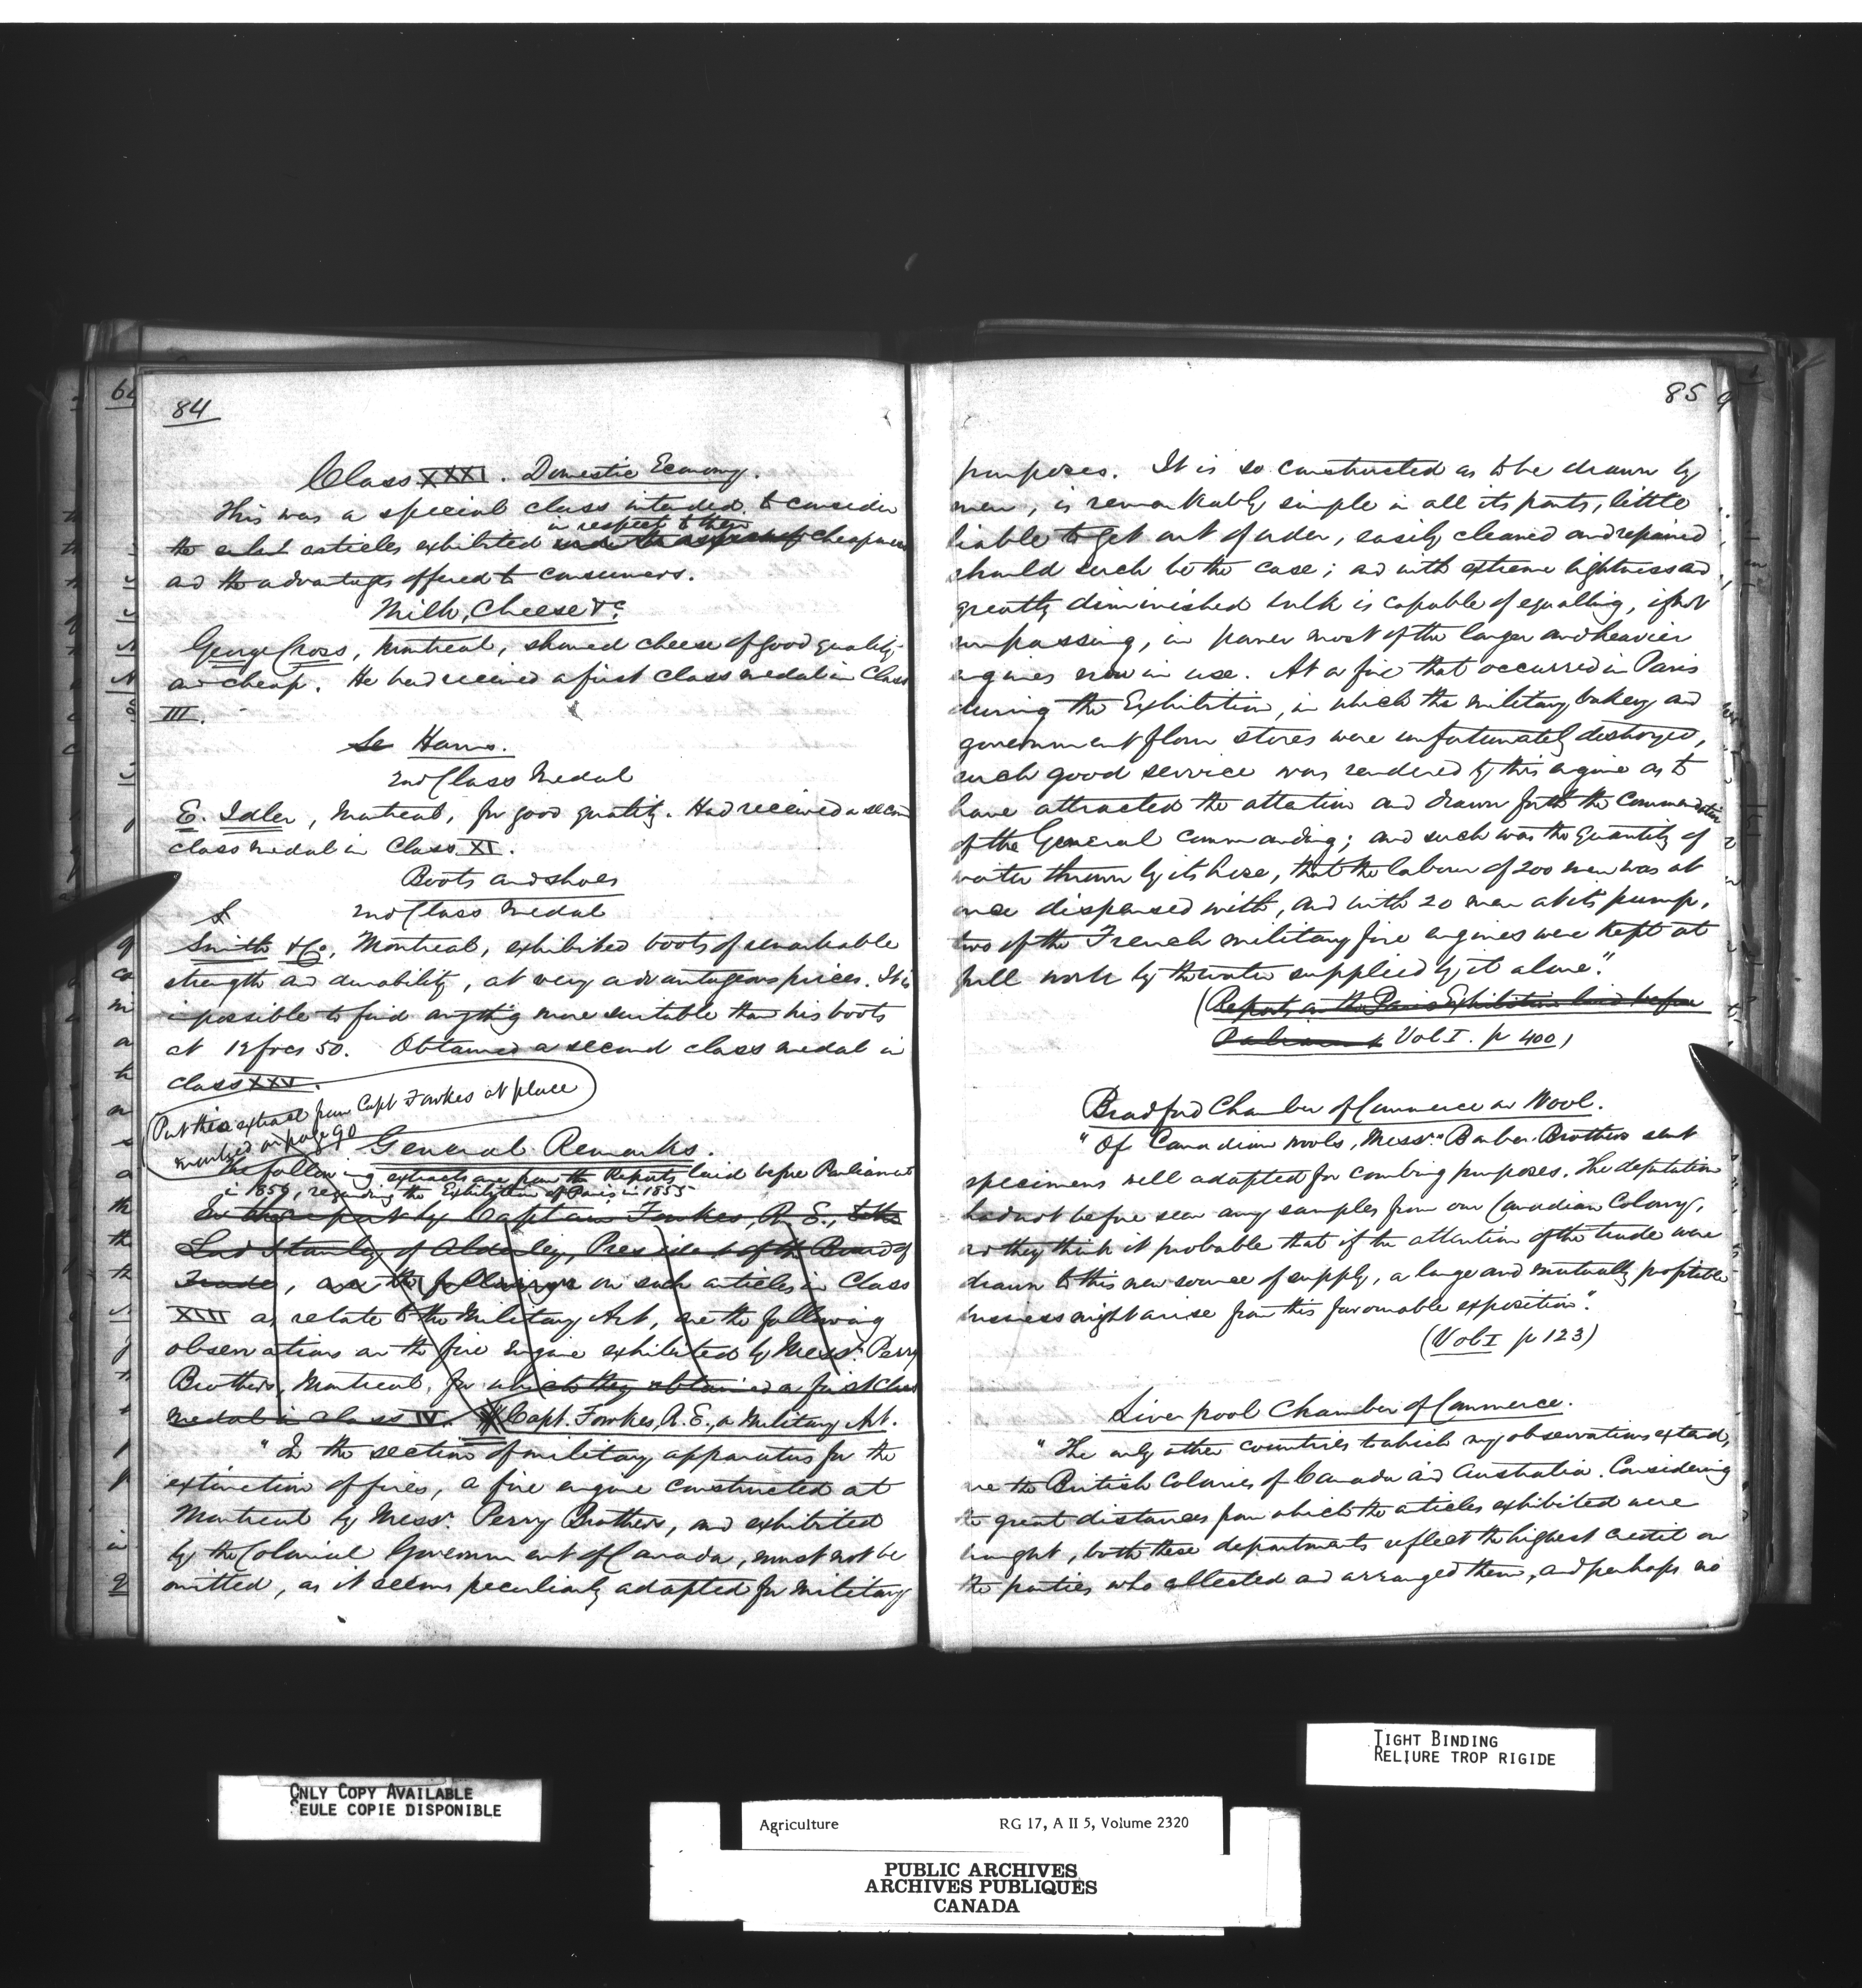 84
Class XXXI. Domestic Economy.
This was a special class intended to consider
in respect to their
the articles exhibited cheapness
and the advantages offered to consumers.
Milk, Cheese &c.
George Cross, Montreal, showed cheese of good quality
and cheap. He had received a first class medal in Class
III.
Hams.
2nd Class Medal
E. Idler, Montreal, for good quality. Had received a second
class medal in Class XI.
Boots and shoes
2nd Class Medal
Smith & Co, Montreal, exhibited boots of remarkable
strength and durability, at very advantageous prices. It is
impossible to find anything more suitable than his boots
at 12 frcs 50. Obtained a second class medal in
class XXV.
Put this extract from Capt Fowkes at place
marked on page 90
General Remarks.
The following extracts are from the Reports laid before Parliament
in 1856, regarding the Exhibition of Paris in 1855
In the report by Captain Fowkes, R. E., to the
Lord Stanley of Alderley, President of the Board of
Trade, are the following on such articles in Class
XIII as relate to the Military Art, are the following
observations on the fire engine exhibited by Messrs. Perry
Brothers, Montreal, for which they obtained a first class
medal in class IV. Capt. Fowkes, R. E., on Military Art.
"In the section of military apparatus for the
extinction of fires, a fire engine constructed at
Montreal by Messrs. Perry Brothers, and exhibited
by the Colonial Government of Canada, must not be
omitted, as it seems peculiarly adapted for military
85
purposes. It is so constructed as to be drawn by
men, is remarkably simple in all its parts, little
liable to get out of order, easily cleaned and repaired
should such be the case; and with extreme lightness and
greatly diminished bulk is capable of equalling, if not
surpassing, in power most of the larger and heavier
engines now in use. At a fire that occurred in Paris
during the Exhibition, in which the military bakery and
government flour stores were unfortunately destroyed,
such good service was rendered by this engine as to
have attracted the attention and drawn forth the commendation
of the General commanding; and such was the quantity of
water thrown by its hose, that the labour of 200 men was at
once dispensed with, and with 20 men at its pump,
two of the French military fire engines were kept at
full work by the water supplied by it alone."
(Reports on the Paris Exhibition laid before
Parliament Vol I. p 400)
Bradford Chamber of Commerce on Wool.
"Of Canadian wools, Messrs. Barber Brothers sent
specimens well adapted for combing purposes. The deputation
had not before seen any samples from our Canadian Colony,
and they think it probable that if the attention of the trade were
drawn to this new source of supply, a large and mutually profitable
business might arise from this favourable exposition".
(Vol I p 123)
Liverpool Chamber of Commerce.
"The only other countries to which my observations extend,
are the British Colonies of Canada and Australia. Considering
the great distances from which the articles exhibited were
brought, both these departments reflect the highest credit on
the parties who collected and arranged them, and perhaps no
TIGHT BINDING
RELIURE TROP RIGIDE
ONLY COPY AVAILABLE
SEULE COPIE DISPONIBLE
Agriculture RG 17, A II 5, Volume 2320
PUBLIC ARCHIVES
ARCHIVES PUBLIQUES
CANADA